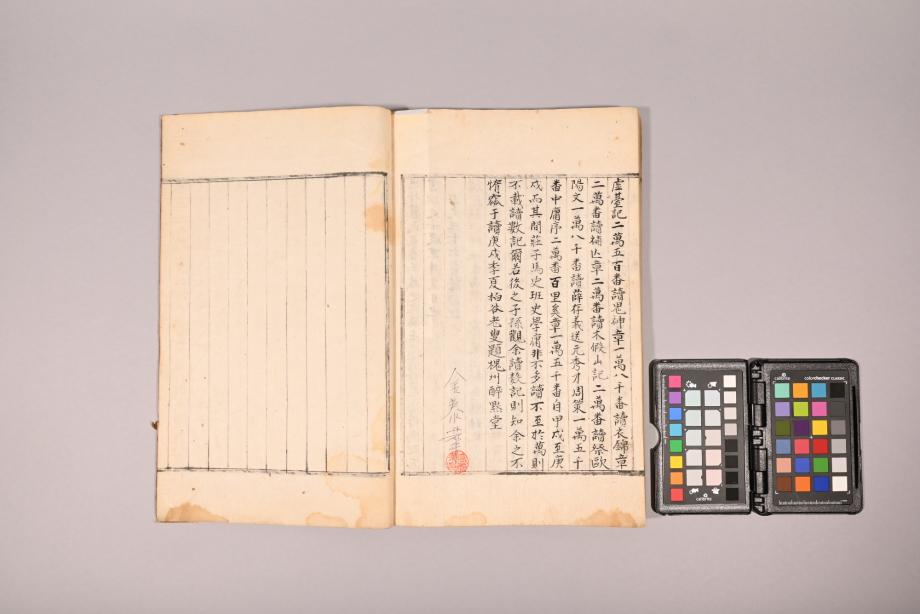 虛臺記二萬五百番讀鬼神章一萬八千番讀衣錦章
二萬番讀補亾章二萬番讀木假山記二萬番讀祭歐
陽文一萬八千番讀薛存義送元秀才周策一萬五千
番中庸序二萬番百里奚章一萬五千番自甲戌至庚
戌而其間莊子馬史班史學庸非不多讀不至於萬則
不載讀數記爾若後之子孫觀余讀數記則知余之不
惰窳于讀庚戌季夏柏谷老叟題槐州醉默堂
calibrite
colorchecker CLASSIC
calibrite